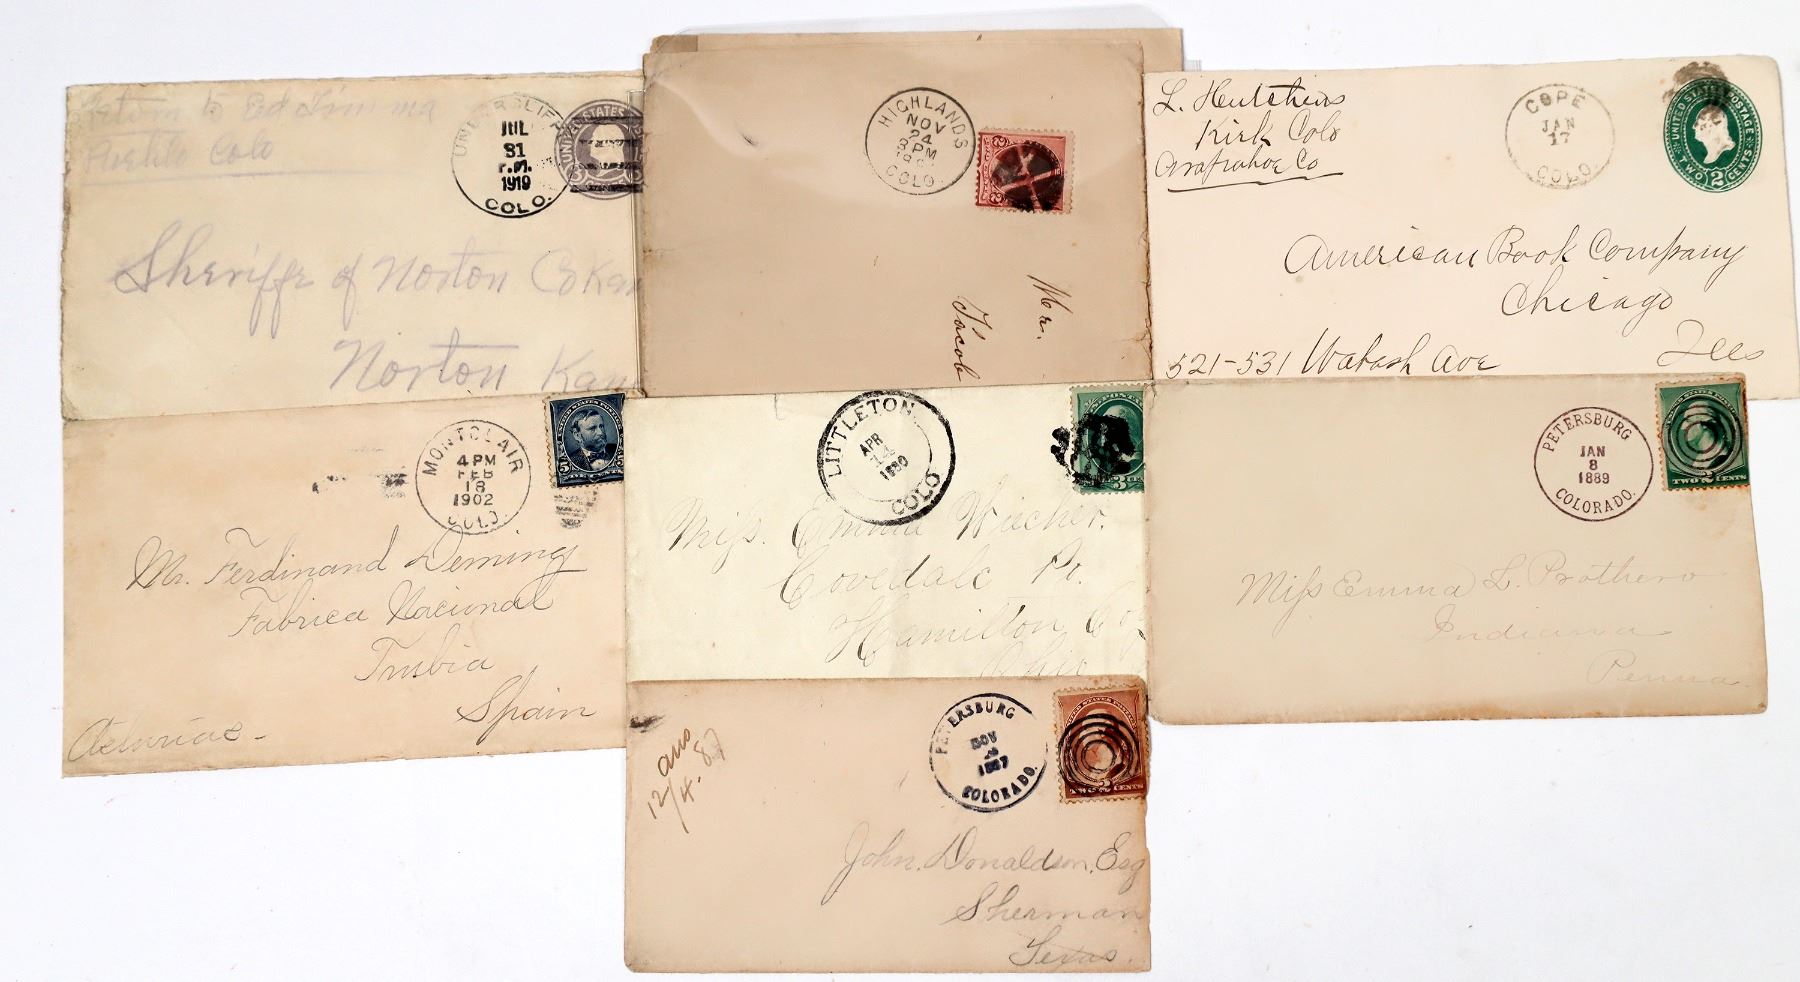 Return to Ed Timma
Pueblo Colo
UNDERCLIFF
JUL
31
P.M.
1919
COLO.
UNITED STATES
3
Sheriffe of Norton Co Kan
Norton Kan
HIGHLANDS
NOV
24
3 PM
COLO.
2
2
Mr.
Jacob
L. Hutchins
Kirk Colo
Arapahoe Co
COPE
JAN
17
COLO.
UNITED STATES POSTAGE
TWO 2 CENTS
American Book Company
Chicago
Ills
521-531 Wabash Ave
MONTCLAIR
4 PM
FEB
18
1902
COLO.
5 5
Mr. Ferdinand Deming
Fabrica Nacional
Trubia
Spain
Asturias -
LITTLETON
APR
14
1880
COLO
3 CEN
Miss. Emma Wiecher.
Covedale Po.
Hamilton Co
Ohio
PETERSBURG
JAN
8
1889
COLORADO.
2
TWO CENTS
Miss Emma L. Prothero
Indiana
Penna.
ans
12/4. 87
PETERSBURG
NOV
1887
COLORADO.
2
TWO CENTS
John. Donaldson. Esq
Sherman
Texas.